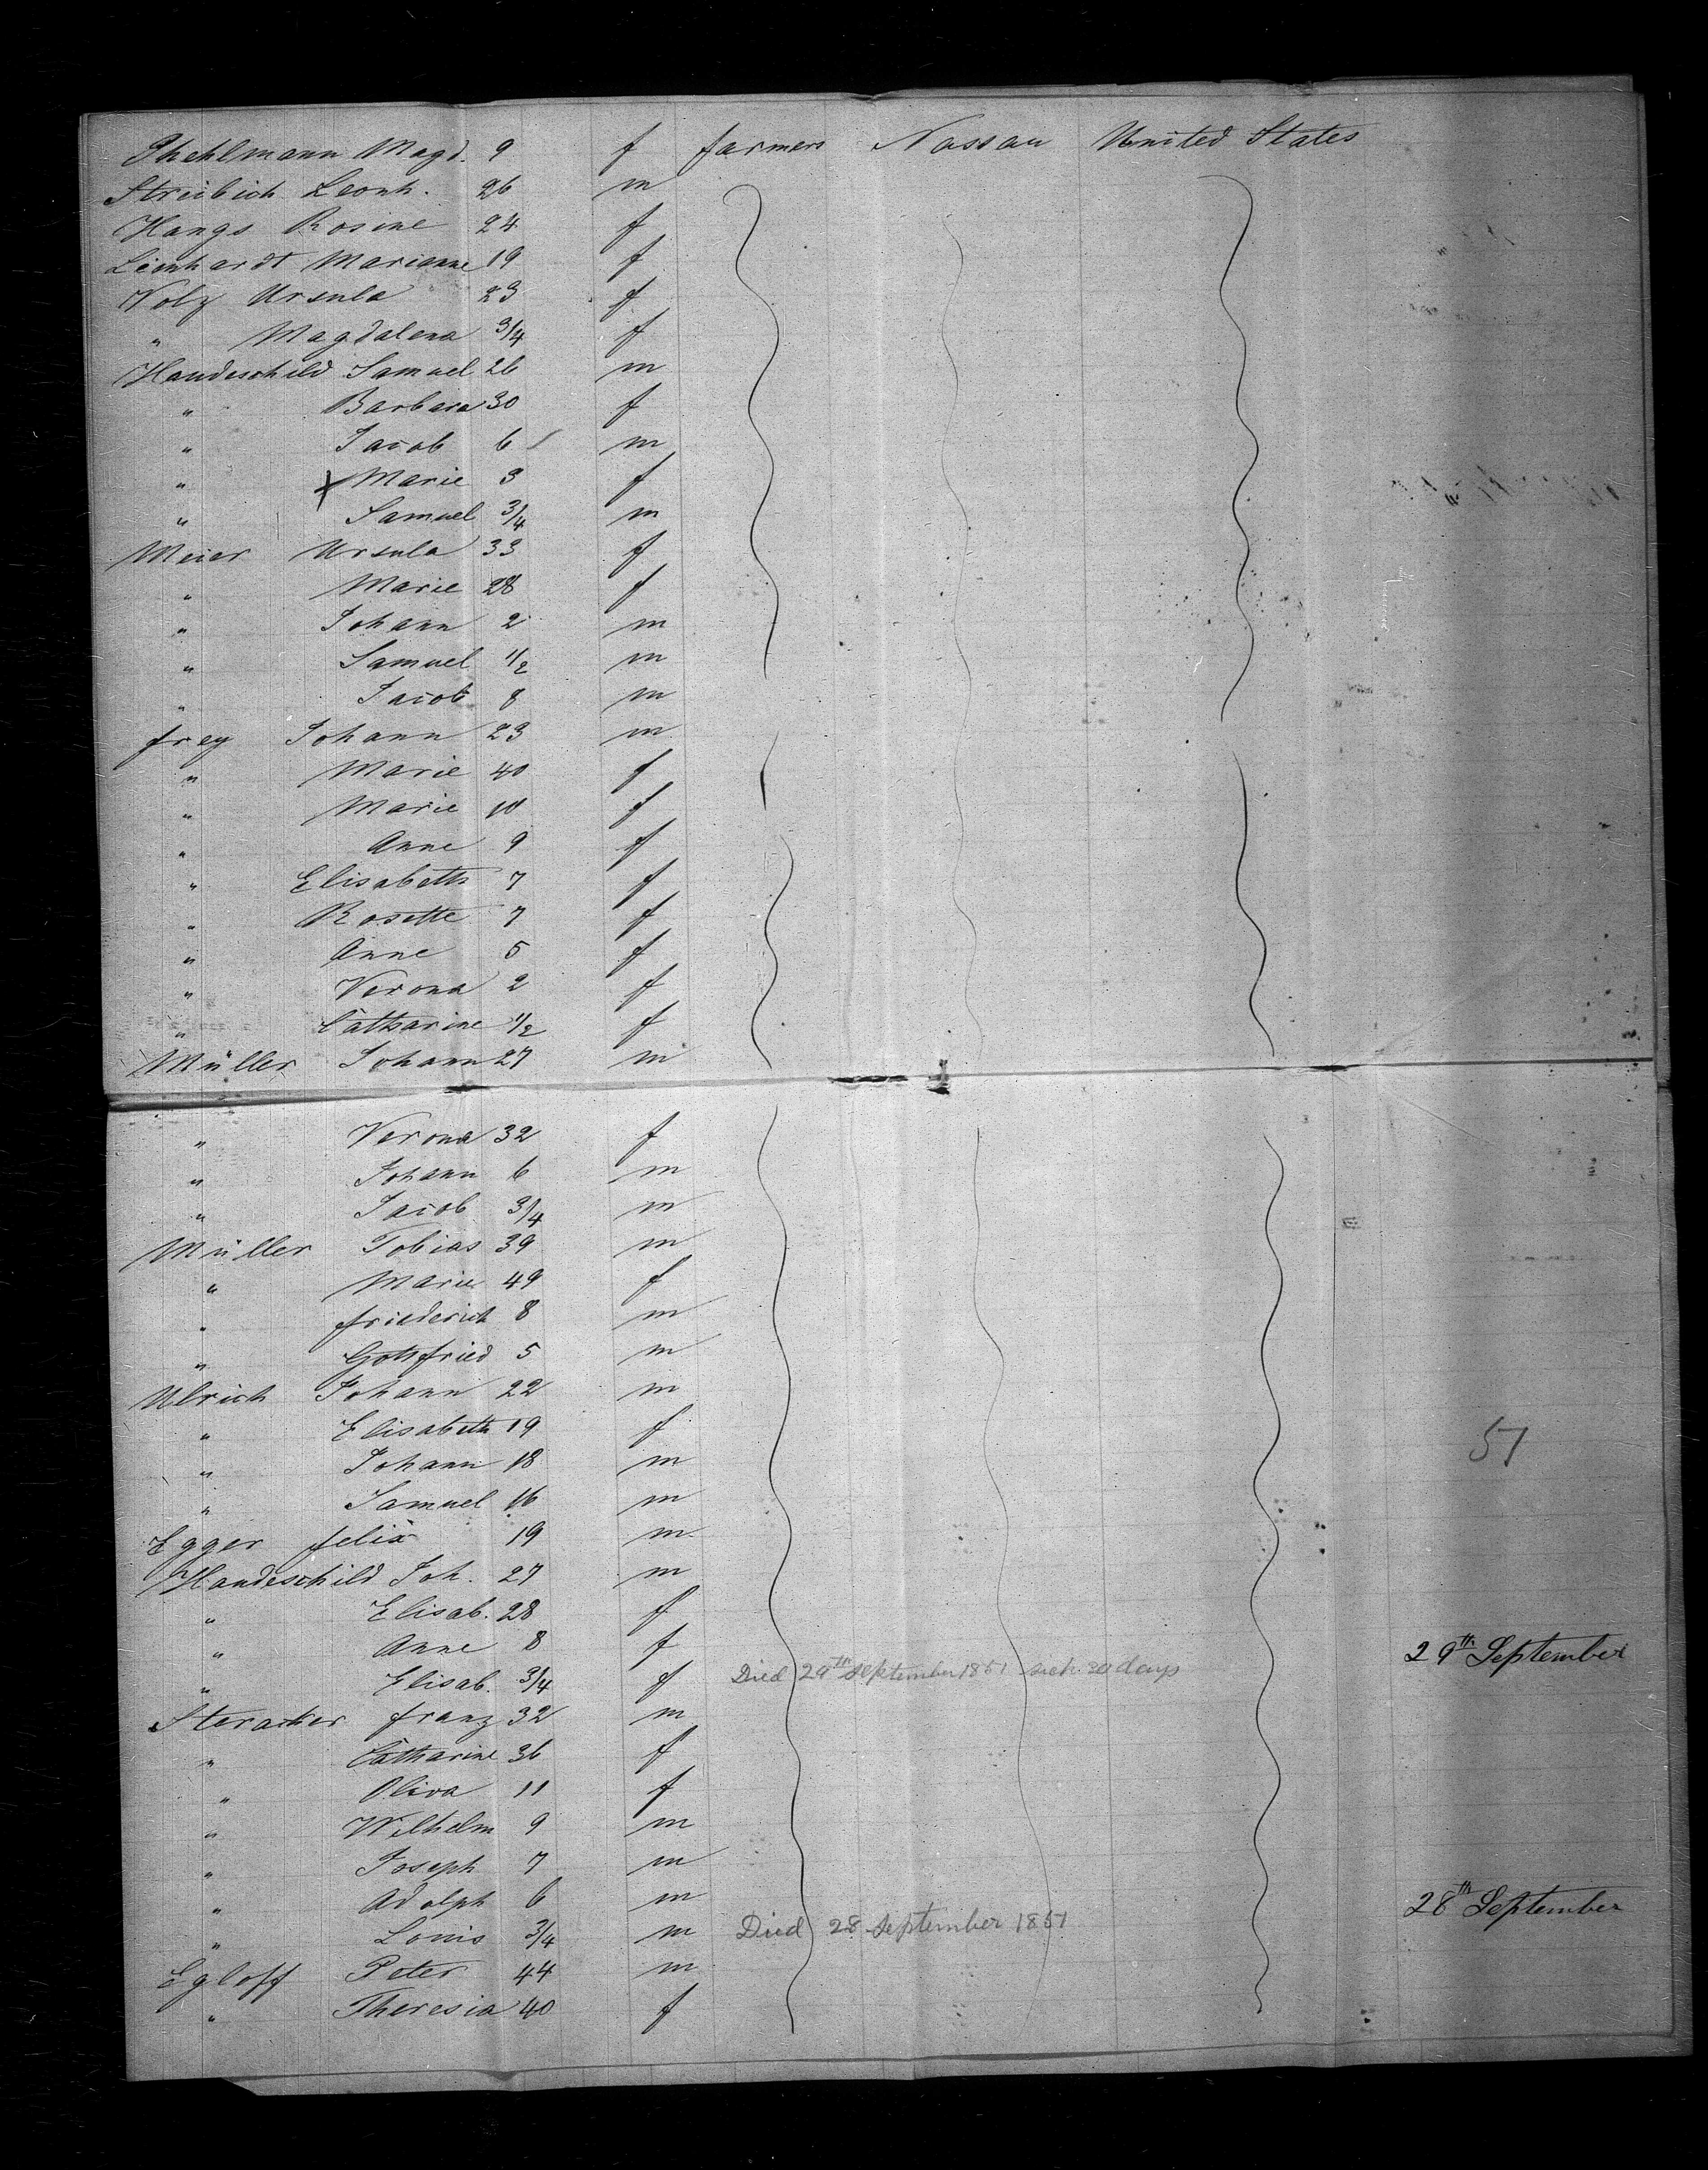 Thehlmann Magd. 9 f farmers Nassau United States
Streibich Leonh. 26 m
Hangs Rosine 24 f
Lienhardt Marianne 19 f
Volz Ursula 23 f
" Magdalena 3/4 f
Haudeschild Samuel 26 m
" Barbara 30 f
" Jacob 6 m
" x Marie 3 f
" Samuel 3/4 m
Meier Ursula 33 f
" Marie 28 f
" Johann 2 m
" Samuel 1/2 m
" Jacob 8 m
frey Johann 23 m
" Marie 40 f
" Marie 10 f
" Anne 9 f
" Elisabeth 7 f
" Rosette 7 f
" Anne 5 f
" Verona 2 f
" Catharine 1/2 f
Müller Johann 27 m
" Verona 32 f
" Johann 6 m
" Jacob 3/4 m
Müller Tobias 39 m
" Marie 49 f
" friederich 8 m
" Gottfried 5 m
Ulrich Johann 22 m
" Elisabeth 19 f
" Johann 18 m 51
" Samuel 16 m
Egger felix 19 m
Haudeschild Joh. 27 m
" Elisab. 28 f
" Anne 8 f 29th September
" Elisab. 3/4 f Died 29th September 1851 sick days
Steracker franz 32 m
" Catharine 36 f
" Oliva 11 f
" Wilhelm 9 m
" Joseph 7 m
" Adolph 6 m 28th September
" Louis 3/4 m Died 28 September 1851
Egloff Peter 44 m
" Theresia 40 f